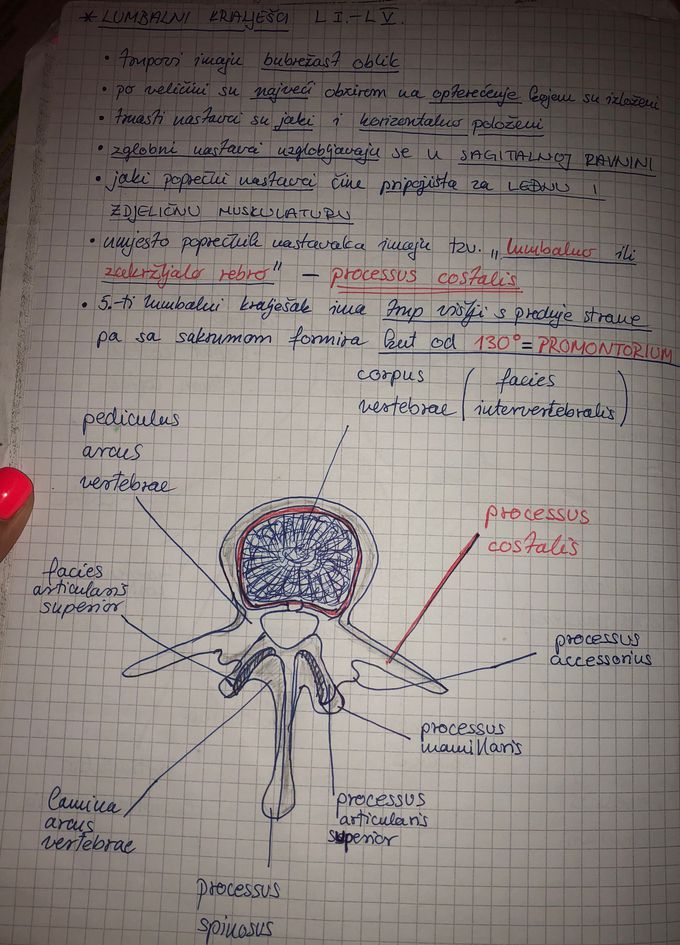 * LUMBALNI KRALJEŠCI L I.-L V.
• trupovi imaju bubrežast oblik
• po veličini su najveći obzirom na opterećenje kojem su izloženi
• trnasti nastavci su jaki i horizontalno položeni
• zglobni nastavci uzglobljavaju se u SAGITALNOJ RAVNINI
• jaki poprečni nastavci čine pripojišta za LEĐNU I
ZDJELIČNU MUSKULATURU
• umjesto poprečnih nastavaka imaju tzv. „lumbalno ili
zakržljalo rebro" – processus costalis
• 5.-ti lumbalni kralješak ima trup višlji s prednje strane
pa sa sakrumom formira kut od 130° = PROMONTORIUM
corpus vertebrae (facies intervertebralis)
pediculus
arcus
vertebrae
processus
costalis
facies
articularis
superior
processus
accessorius
processus
mamillaris
lamina
arcus
vertebrae
processus
articularis
superior
processus
spinosus